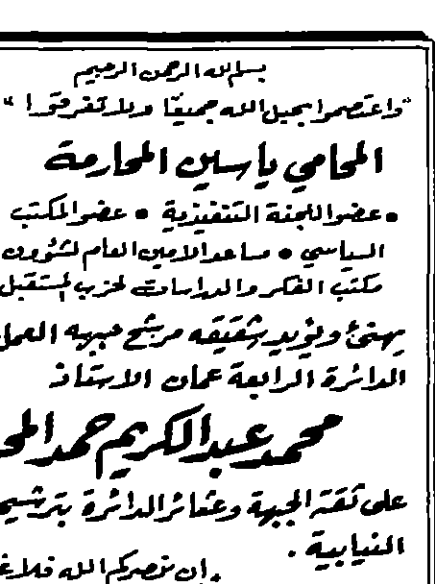 بسم الله الرحمن الرحيم
"واعتصموا بحبل الله جميعًا ولا تفرقوا"
المحامي ياسين المحارمة
• عضو اللجنة التنفيذية • عضو المكتب
السياسي • مساعد الامين العام لشؤون
مكتب الفكر والدراسات لحزب المستقبل
يهنئ ويؤيد شقيقه مرشح جبهه العمل
الدائرة الرابعة عمان الاستاذ
محمد عبدالكريم حمد المح
على ثقة الجبهة وعشائر الدائرة بترشيح
النيابية .
إن ينصركم الله فلا غا